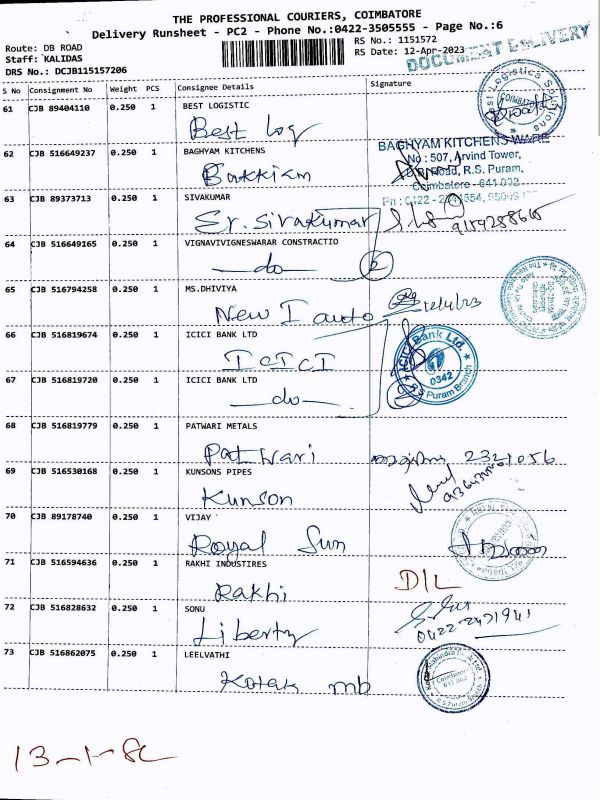 THE PROFESSIONAL COURIERS, COIMBATORE
Delivery Runsheet - PC2 - Phone No.:0422-3505555 - Page No.:6
Route: DB ROAD
Staff: KALIDAS
DRS No.: DCJB115157206
RS No.: 1151572
RS Date: 12-Apr-2023
DOCUMENT DELIVERY
S No Consignment No Weight PCS Consignee Details Signature
61 CJB 89404110 0.250 1 BEST LOGISTIC
Best Log
62 CJB 516649237 0.250 1 BAGHYAM KITCHENS
Bakkiam
BAGHYAM KITCHENS WARE
No : 507, Arvind Tower,
D.B. Road, R.S. Puram,
Coimbatore - 641 002
63 CJB 89373713 0.250 1 SIVAKUMAR
Er. Sivakumar
64 CJB 516649165 0.250 1 VIGNAVIVIGNESWARAR CONSTRACTIO
do 2
65 CJB 516794258 0.250 1 MS.DHIVIYA
New I auto 12/4/23
66 CJB 516819674 0.250 1 ICICI BANK LTD
ICICI
ICICI Bank Ltd
0342
R S Puram Branch
67 CJB 516819720 0.250 1 ICICI BANK LTD
do
68 CJB 516819779 0.250 1 PATWARI METALS
Patwari
69 CJB 516530168 0.250 1 KUNSONS PIPES
Kunson
70 CJB 89178740 0.250 1 VIJAY
Royal Sun
71 CJB 516594636 0.250 1 RAKHI INDUSTIRES
Rakhi D/L
72 CJB 516828632 0.250 1 SONU
Liberty 0422-2471941
73 CJB 516862075 0.250 1 LEELVATHI
Kotak mb